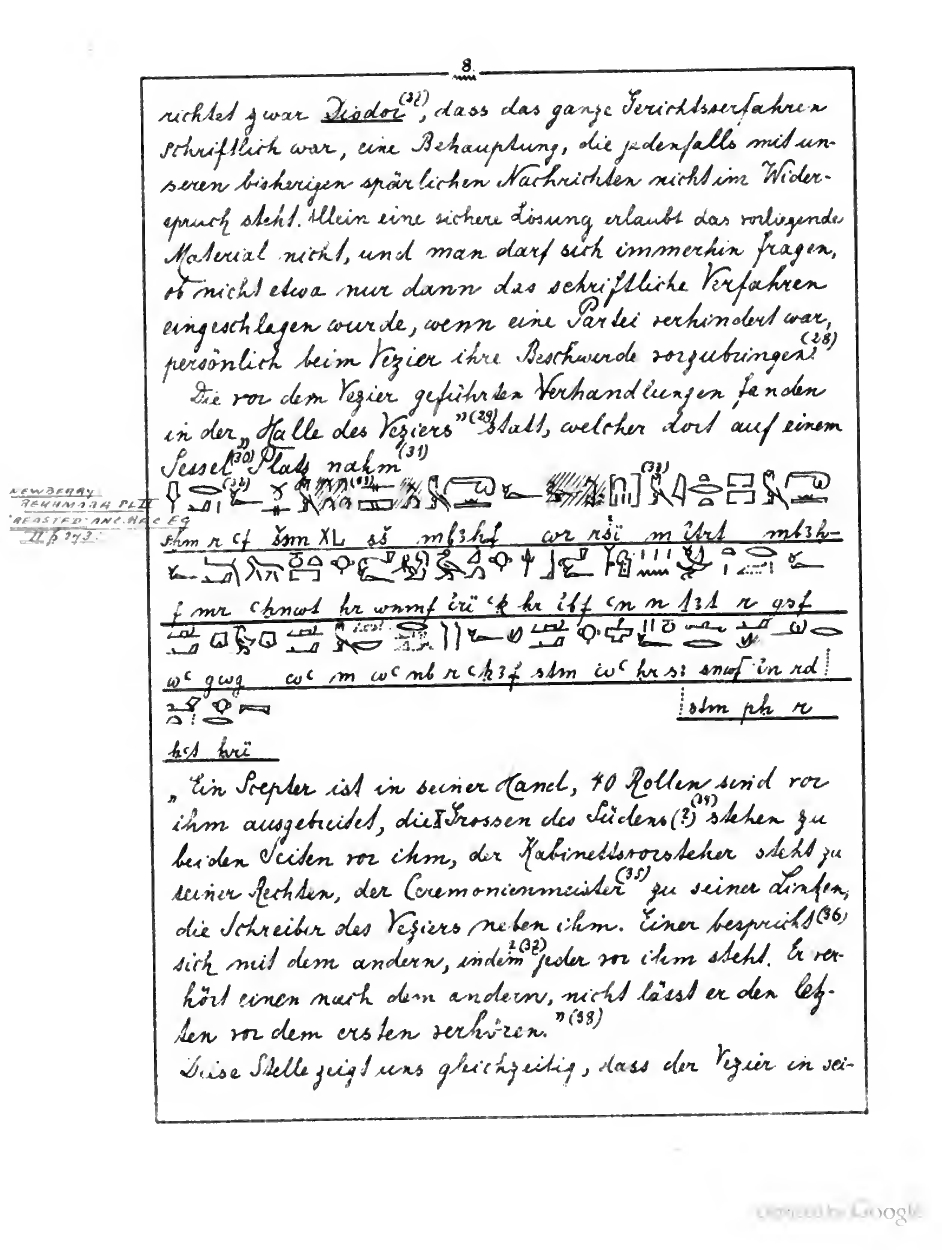 8.
richtet zwar Diodor(31), dass das ganze Gerichtsverfahren
schriftlich war, eine Behauptung, die jedenfalls mit un-
seren bisherigen spärlichen Nachrichten nicht im Wider-
spruch steht. Allein eine sichere Lösung erlaubt das vorliegende
Material nicht, und man darf sich immerhin fragen,
ob nicht etwa nur dann das schriftliche Verfahren
eingeschlagen wurde, wenn eine Partei verhindert war,
persönlich beim Vezier ihre Beschwerde vorzubringen?(28)
Die vor dem Vezier geführten Verhandlungen fanden
in der „Halle des Veziers"(29) statt, welcher dort auf einem
Sessel(30) Platz nahm(31)
NEWBERRY
REKHMARA PL II
BREASTED ANC. REC EG
II p 273.
sḫm r ꜥf šsm XL sš mbꜣḥf wr rsï m îtrt mbꜣḥ-
f mr ꜥẖnwt ḥr wnmf îrï ꜥḳ ḥr îbf ꜥn n tꜣt r gsf
wꜥ gwg wꜥ m wꜥ nb r ꜥḳꜣf sṯm wꜥ ḥr sꜣ snwf în rd
sṯm pḥ r
ḥꜣt ḥrï
„Ein Scepter ist in seiner Hand, 40 Rollen sind vor
ihm ausgebreitet, die X Grossen des Südens (?)(34) stehen zu
beiden Seiten vor ihm, der Kabinettsvorsteher steht zu
seiner Rechten, der Ceremonienmeister(35) zu seiner Linken,
die Schreiber des Veziers neben ihm. Einer bespricht(36)
sich mit dem andern, indem ?(37) jeder vor ihm steht. Er ver-
hört einen nach dem andern, nicht lässt er den letz-
ten vor dem ersten verhören."(38)
Diese Stelle zeigt uns gleichzeitig, dass der Vezier in sei-
Digitized by Google